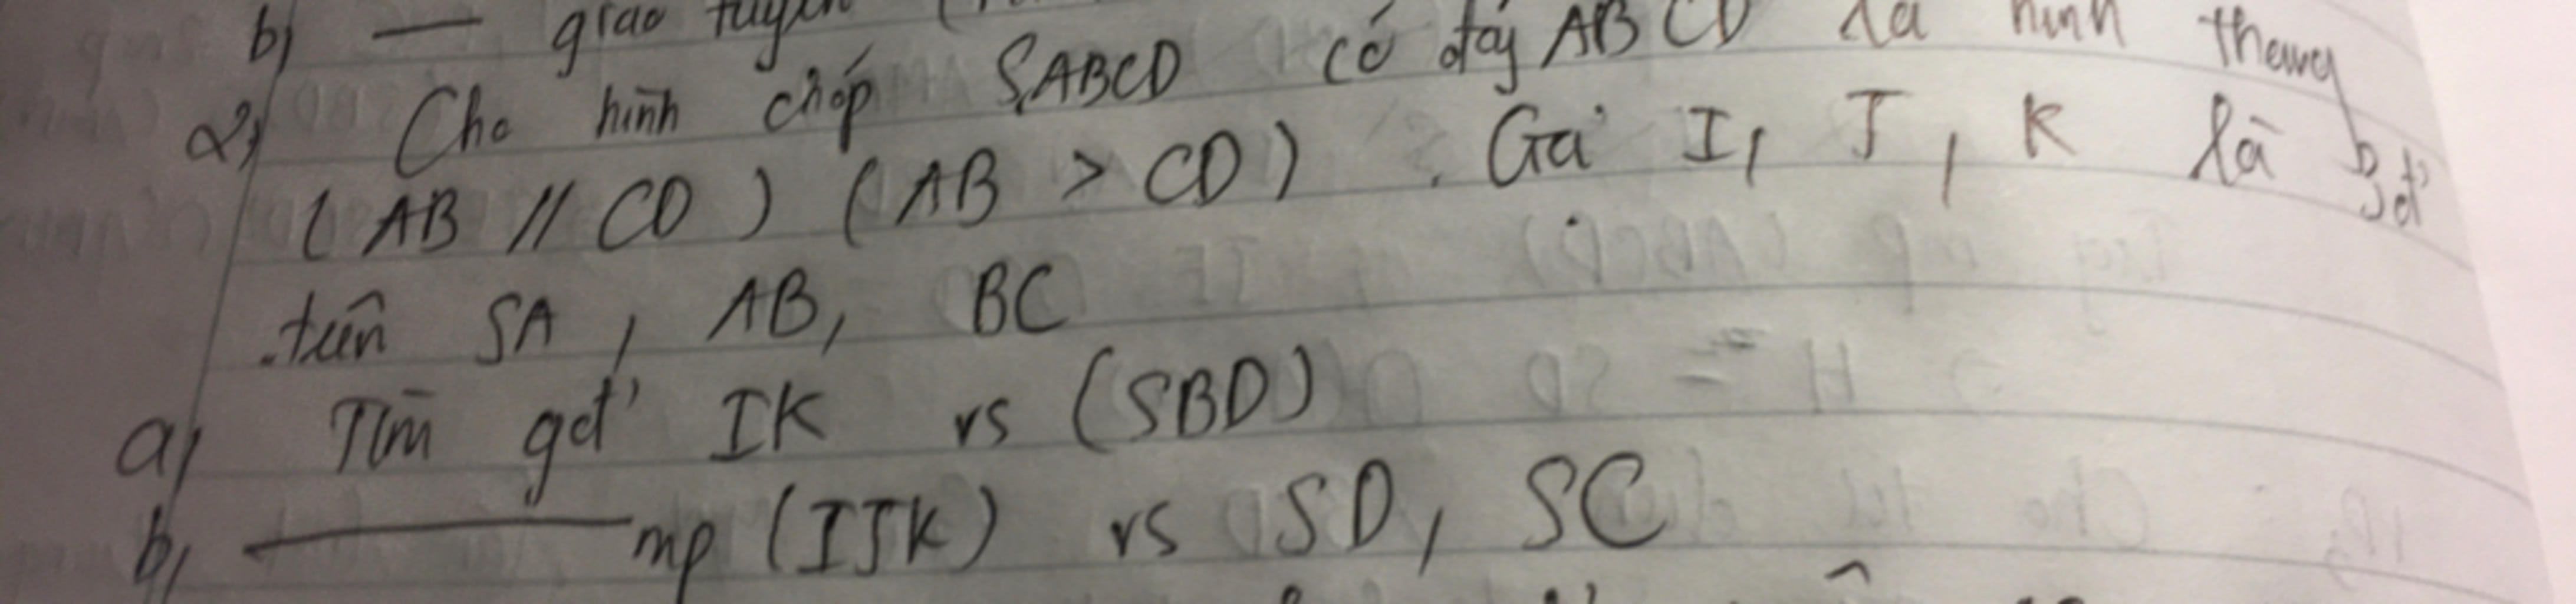 b) — giao tuyến
2) Cho hình chóp S.ABCD có đáy ABCD là hình thang
(AB // CD) (AB > CD). Gọi I, J, K là 3 đ'
trên SA, AB, BC
a) Tìm gđ' IK vs (SBD)
b) — mp (IJK) vs SD, SC